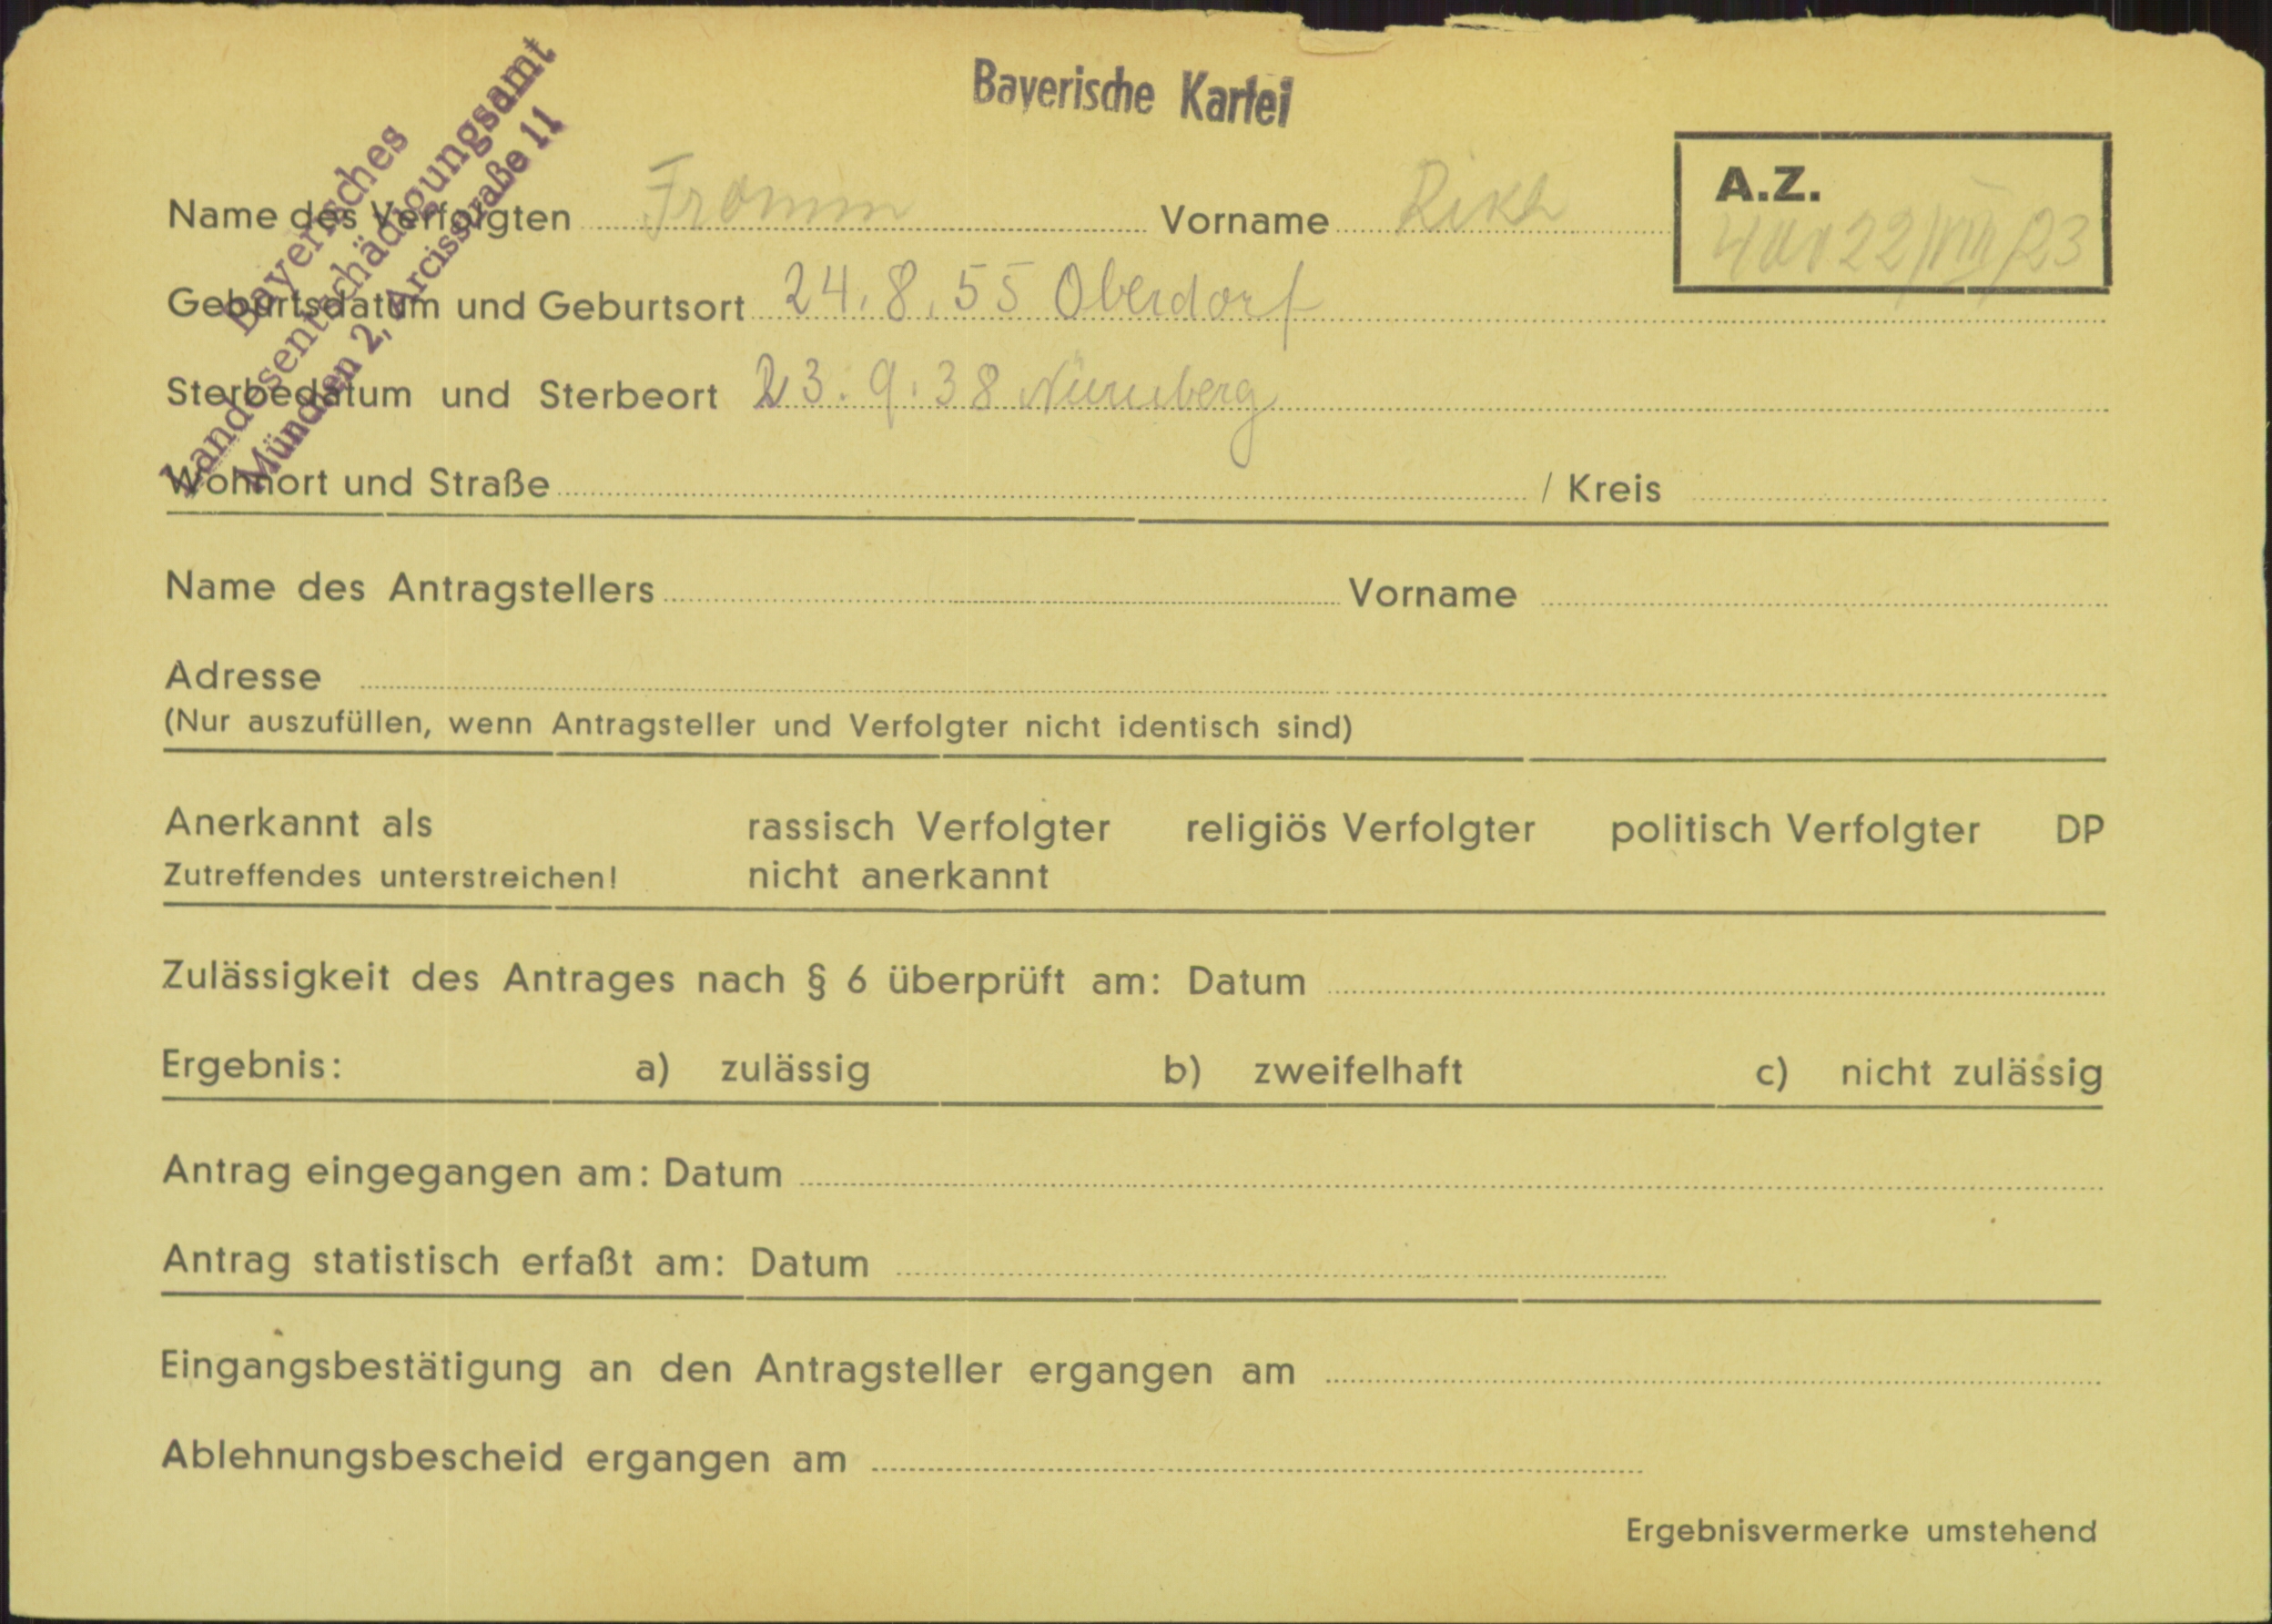 Bayerische Kartei
Bayerisches
Landesentschädigungsamt
München 2, Arcisstraße 11
A.Z.
22/VIII/23
Name des Verfolgten Fromm Vorname
Geburtsdatum und Geburtsort 24.8.55 Oberdorf
Sterbedatum und Sterbeort 23.9.38 Nürnberg
Wohnort und Straße / Kreis
Name des Antragstellers Vorname
Adresse
(Nur auszufüllen, wenn Antragsteller und Verfolgter nicht identisch sind)
Anerkannt als rassisch Verfolgter religiös Verfolgter politisch Verfolgter DP
Zutreffendes unterstreichen! nicht anerkannt
Zulässigkeit des Antrages nach § 6 überprüft am: Datum
Ergebnis: a) zulässig b) zweifelhaft c) nicht zulässig
Antrag eingegangen am: Datum
Antrag statistisch erfaßt am: Datum
Eingangsbestätigung an den Antragsteller ergangen am
Ablehnungsbescheid ergangen am
Ergebnisvermerke umstehend